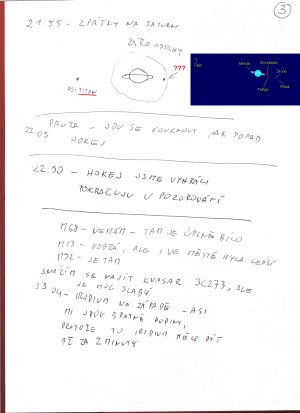 3
21 55 - ZPÁTKY NA SATURN
ZÁŘE OBTLOUSTLÝ
???
ASI TITAN
Titan
Mimas
Enceladus
Dione
Tethys
Rhea
PAUZA - JDU SE KOUKNOUT, JAK DOPAD
22:05
HOKEJ
22:30 - HOKEJ JSME VYHRÁLI
POKRAČUJU V POZOROVÁNÍ
M63 - NEMÁM - TAM JE ÚPLNĚ BÍLO
M13 - DOBRÁ, ALE I VE MĚSTĚ BYLA LEPŠÍ
M92 - JE TAM
SNAŽÍM SE NAJÍT KVASAR 3C273, ALE
JE MOC SLABÝ
23 04 - IRIDIUM NA ZÁPADĚ - ASI
MI JDOU ŠPATNĚ HODINY,
PROTOŽE TO IRIDIUM MĚLO BÝT
AŽ ZA 2 MINUTY